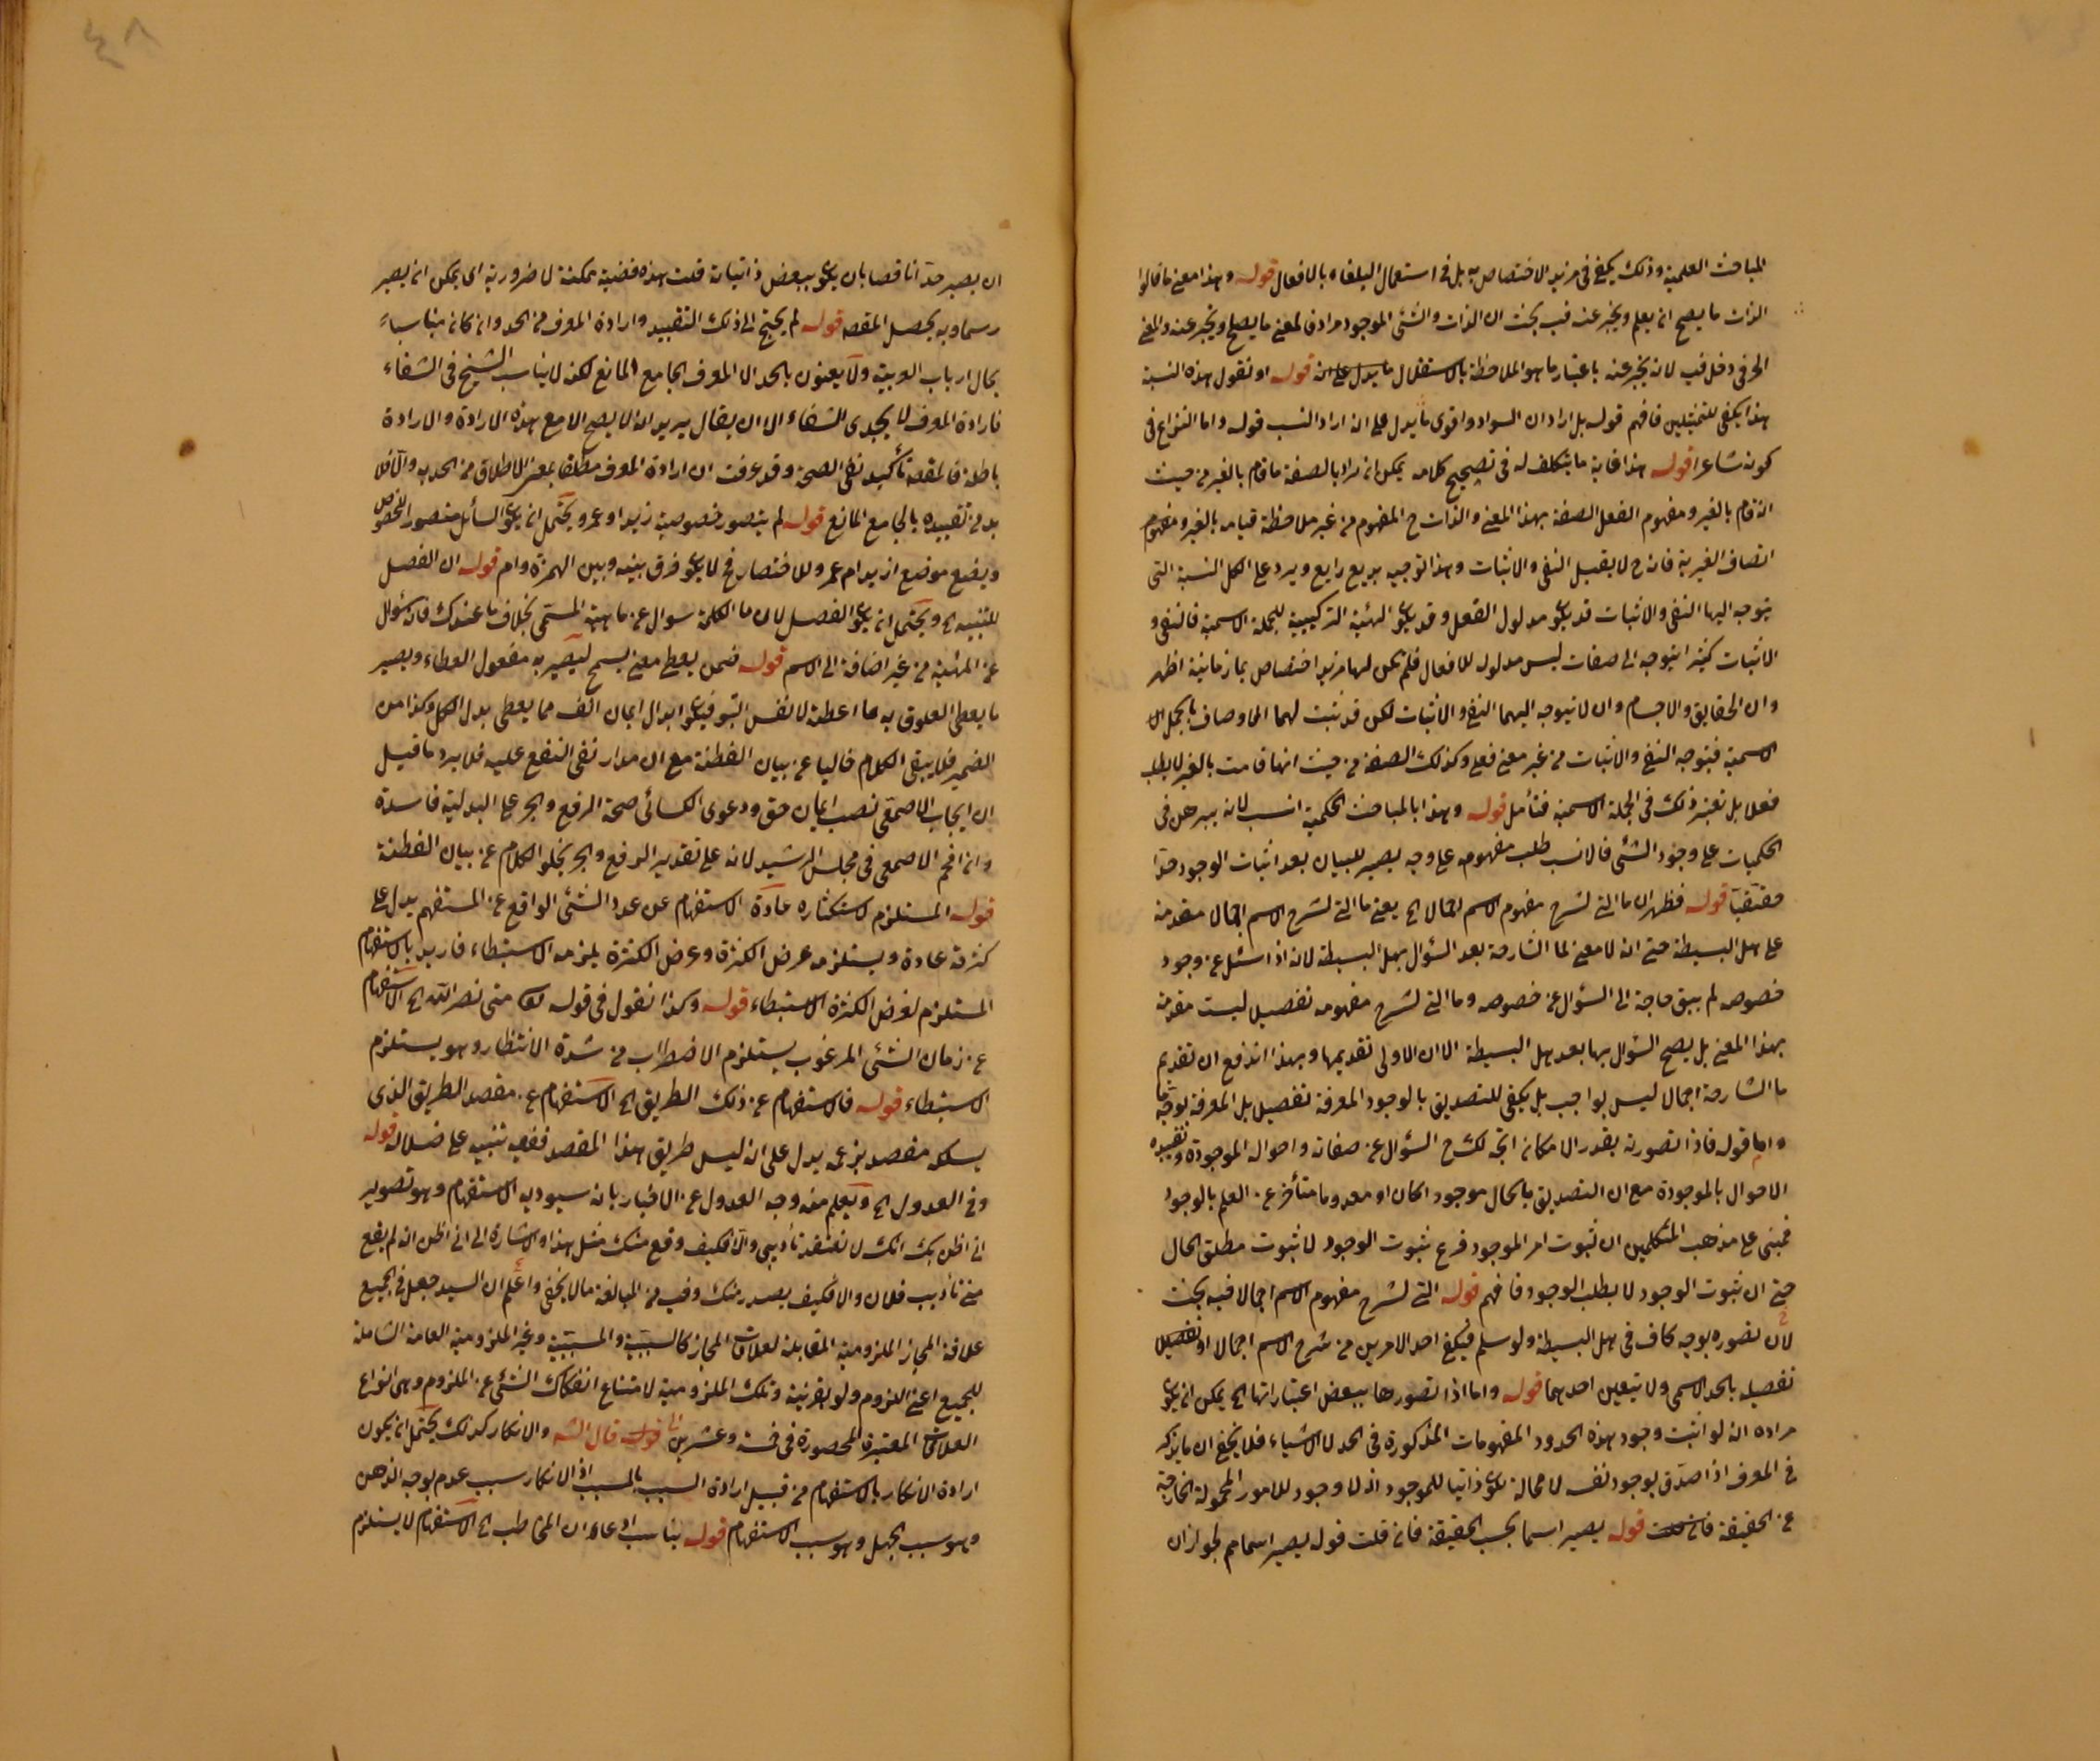 المباحث العلمية وذلك يكفي في مزيد الاختصاص به بل في استعمال البلغاء بالافعال قوله وهذا معنى ما قالوا
الذات ما يصح ان يعلم ويخبر عنه فيه بحث لان الذات والشئ الموجود مرادف لمعنى ما يصلح ويخبر عنه والمعنى
الحرفي دخل فيه لانه يخبر عنه باعتبار ما هو الملاحظة بالاستقلال ما يدل على انه قوله او نقول هذه النسبة
هذا يكفي للتمثيلين فافهم قوله بل اراد ان السواد واقوى ما يدل على انه اراد النسب قوله واما النزاع في
كونه شاعرا قوله هذا غاية ما يتكلف له في تصحيح كلامه يمكن انه اراد بالصفة ما قام بالغير من حيث
انه قام بالغير ومفهوم الفعل الصفة بهذا المعنى والذات ح المفهوم من غير ملاحظة قيامه بالغير ومفهوم
اتصاف الغير به فانه ح لا يقبل النفي والاثبات وهذا توجيه بديع رايع ويرد على الكل النسبة التي
يتوجه اليها النفي والاثبات قد يكون مدلول الفعل وقد يكون الهيئة التركيبية للجملة الاسمية فالنفي و
الاثبات كثيرا يتوجه الى صفات ليس مدلول للافعال فلم يكن لها مزيد اختصاص بما زمانيته اظهر
وان الحقايق والاجسام وان لا يتوجه اليهما النفي والاثبات لكن قد يثبت لهما الاوصاف بالجمل
الاسمية فيتوجه النفي والاثبات من غير معنى فعل وكذلك الصفة من حيث انها قامت بالغير لا يطلب
فعلا بل تعتبر ذلك في الجملة الاسمية فتأمل قوله وهذا بالمباحث الحكمية انسب لانه يبرهن في
الحكميات على وجود الشئ فالانسب طلب مفهومه على وجه يصير للبيان بعد اثبات الوجود حدا
حقيقيا قوله فظهر ان ما التي لشرح مفهوم الاسم اجمالا الخ يعني ما التي لشرح الاسم اجمالا مقدمة
على هل البسيطة حتى انه لا معنى لما الشارحة بعد السؤال بهل البسيطة لانه اذا سئل عن وجود
خصوصه لم يبق حاجة الى السؤال عن خصوصه وما التي لشرح مفهومه تفصيلا ليست مقدمة
بهذا المعنى بل يصح السؤال بها بعد هل البسيطة الا ان الاولى تقديمها وبهذا اندفع ان تقديم
ما الشارحة اجمالا ليس بواجب بل يكفي للتصديق بالوجود المعرفة تفصيلا بل المعرفة بوجه ما
واما قوله فاذا تصورته بقدر الامكان اتجه لك ح السؤال عن صفاته واحواله الموجودة وتقييده
الاحوال بالموجودة مع ان التصديق بالحال موجودا كان او معدوما متأخر عن العلم بالوجود
فمبني على مذهب المتكلمين ان ثبوت امر لموجود فرع ثبوت الوجود لا ثبوت مطلق الحال
حتى ان ثبوت الوجود لا يطلب الوجود فافهم قوله التي لشرح مفهوم الاسم اجمالا فيه بحث
لان تصوره بوجه كاف في هل البسيطة ولو سلم فيكفي احد الامرين من شرح الاسم اجمالا او تفصيلا
تفصيله بالحد الاسمي ولا يتعين احدهما قوله واما اذا تصورها ببعض اعتباراتها الخ يمكن ان يكون
مراده انه لو اثبت وجود هذه الحدود المفهومات المذكورة في الحد للاشياء فلا يخفى ان ما يذكر
في المعرف اذا صدق بوجود نفسه لا محالة يكون ذاتيا للموجود اذ لا وجود للامور المحمولة الخارجة
عن الحقيقة فان قلت قوله يصير اسما بحسب الحقيقة فان قلت قوله يصير اسما مم لجواز ان
ان يصير حدا ناقصا بان يكون ببعض ذاتياته قلت هذه قضية ممكنة لا ضرورية اى يمكن ان يصير
رسما وبه يحصل المقصد قوله لم يحتج الى ذلك التقييد وارادة المعرف من الحد وان كان مناسبا
بحال ارباب العربية ولا يعنون بالحد الا المعرف الجامع المانع لكنه لا يناسب الشيخ في الشفاء
فارادة المعرف لا يجدى للشفاء الا ان يقال يريد انه لا يصح الا مع هذه الارادة والارادة
باطلة فالمقصد تأكيد نفي الصحة وقد عرفت ان ارادة المعرف مطلقا بمعنى الاطلاق من الحد به والا فلا
بد من تقييده بالجامع المانع قوله لم يتصور خصوصية زيد او عمرو ويحتمل ان يكون السائل متصور الخصوص
ويضع موضع ازيد ام عمرو للاختصار فح لا يكون فرق بينه وبين الهمزة وام قوله ان الفصل
للتنبيه الخ ويحتمل ان يكون الفصل لان ما الكلمة سؤال عن ماهية المسمى بخلاف ما عندك فانه سؤال
عن المهية من غير اضافة الى الاسم قوله ضمن يعطي معنى يسمح ليصير به مفعول العطاء ويصير
ما يعطي العلوق به ما اعطته لا نفس البو فيكون ابدال ايمان انف مما يعطي بدل الكل وكذا من
الضمير فلا يبقى الكلام خاليا عن بيان الفطنة مع ان مدار نفي النفع عليه فلا يرد ما قيل
ان ايجاب الاصمعي نصب ايمان حق ودعوى الكسائي صحة الرفع والجر على البدلية فاسدة
وانه افحم الاصمعي في مجلس الرشيد لانه على تقدير الرفع والجر يخلو الكلام عن بيان الفطنة
قوله المستلزم لاستكثاره عادة الاستفهام عن عدد الشئ الواقع عن المستفهم يدل على
كثرته عادة ويستلزمه عرض الكثرة وعرض الكثرة يلزمه الاستبطاء فاريد بالاستفهام
المستلزم لفرض الكثرة الاستبطاء قوله وكذا نقول في قوله تعالى متى نصر الله الخ الاستفهام
عن زمان الشئ المرغوب يستلزم الاضطراب من شدة الانتظار وهو يستلزم
الاستبطاء قوله فالاستفهام عن ذلك الطريق الخ الاستفهام عن مقصد الطريق الذى
يسلكه مقصد بزعمه يدل على انه ليس طريق هذا المقصد ففيه تنبيه على ضلاله قوله
وفي العدول الخ ويعلم منه وجه العدول عن الاخبار بانه سيودبه الاستفهام وهو تصوير
اني اظن بك انك لا تعتقد تأديبي والا فكيف وقع منك مثل هذا والاشارة الى اني اظن انه لم يقع
مني تأديب فلان والا فكيف يصدر منك وفيه من المبالغة ما لا يخفى واعلم ان السيد جعل في الجميع
علاقة المجاز الملزومية المقابلة لعلاقات المجاز كالسببية والمسببية وغير الملزومية العامة الشاملة
للجميع اعني اللزوم ولو بقرينة وتلك الملزومية لامتناع انفكاك الشئ عن الملزوم وهي انواع
العلاقات المعتبرة المحصورة في خمسة وعشرين قوله قال الشه والانكار كذلك يحتمل ان يكون
ارادة الانكار بالاستفهام من قبيل ارادة السبب بالمسبب اذ الانكار سبب عدم توجه الذهن
وهو سبب الجهل وهو سبب الاستفهام قوله يناسب ادعاء ان المخاطب الخ الاستفهام لا يستلزم